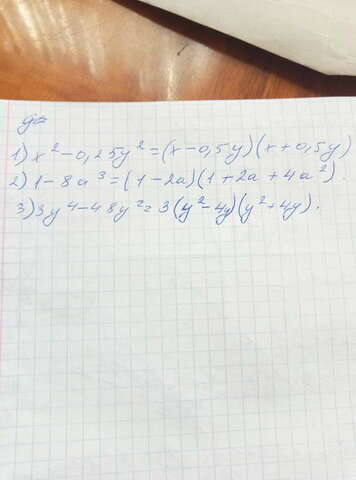 1) x² - 0,25y² = (x - 0,5y)(x + 0,5y)
2) 1 - 8a³ = (1 - 2a)(1 + 2a + 4a²).
3) 3y⁴ - 48y² = 3(y² - 4y)(y² + 4y).